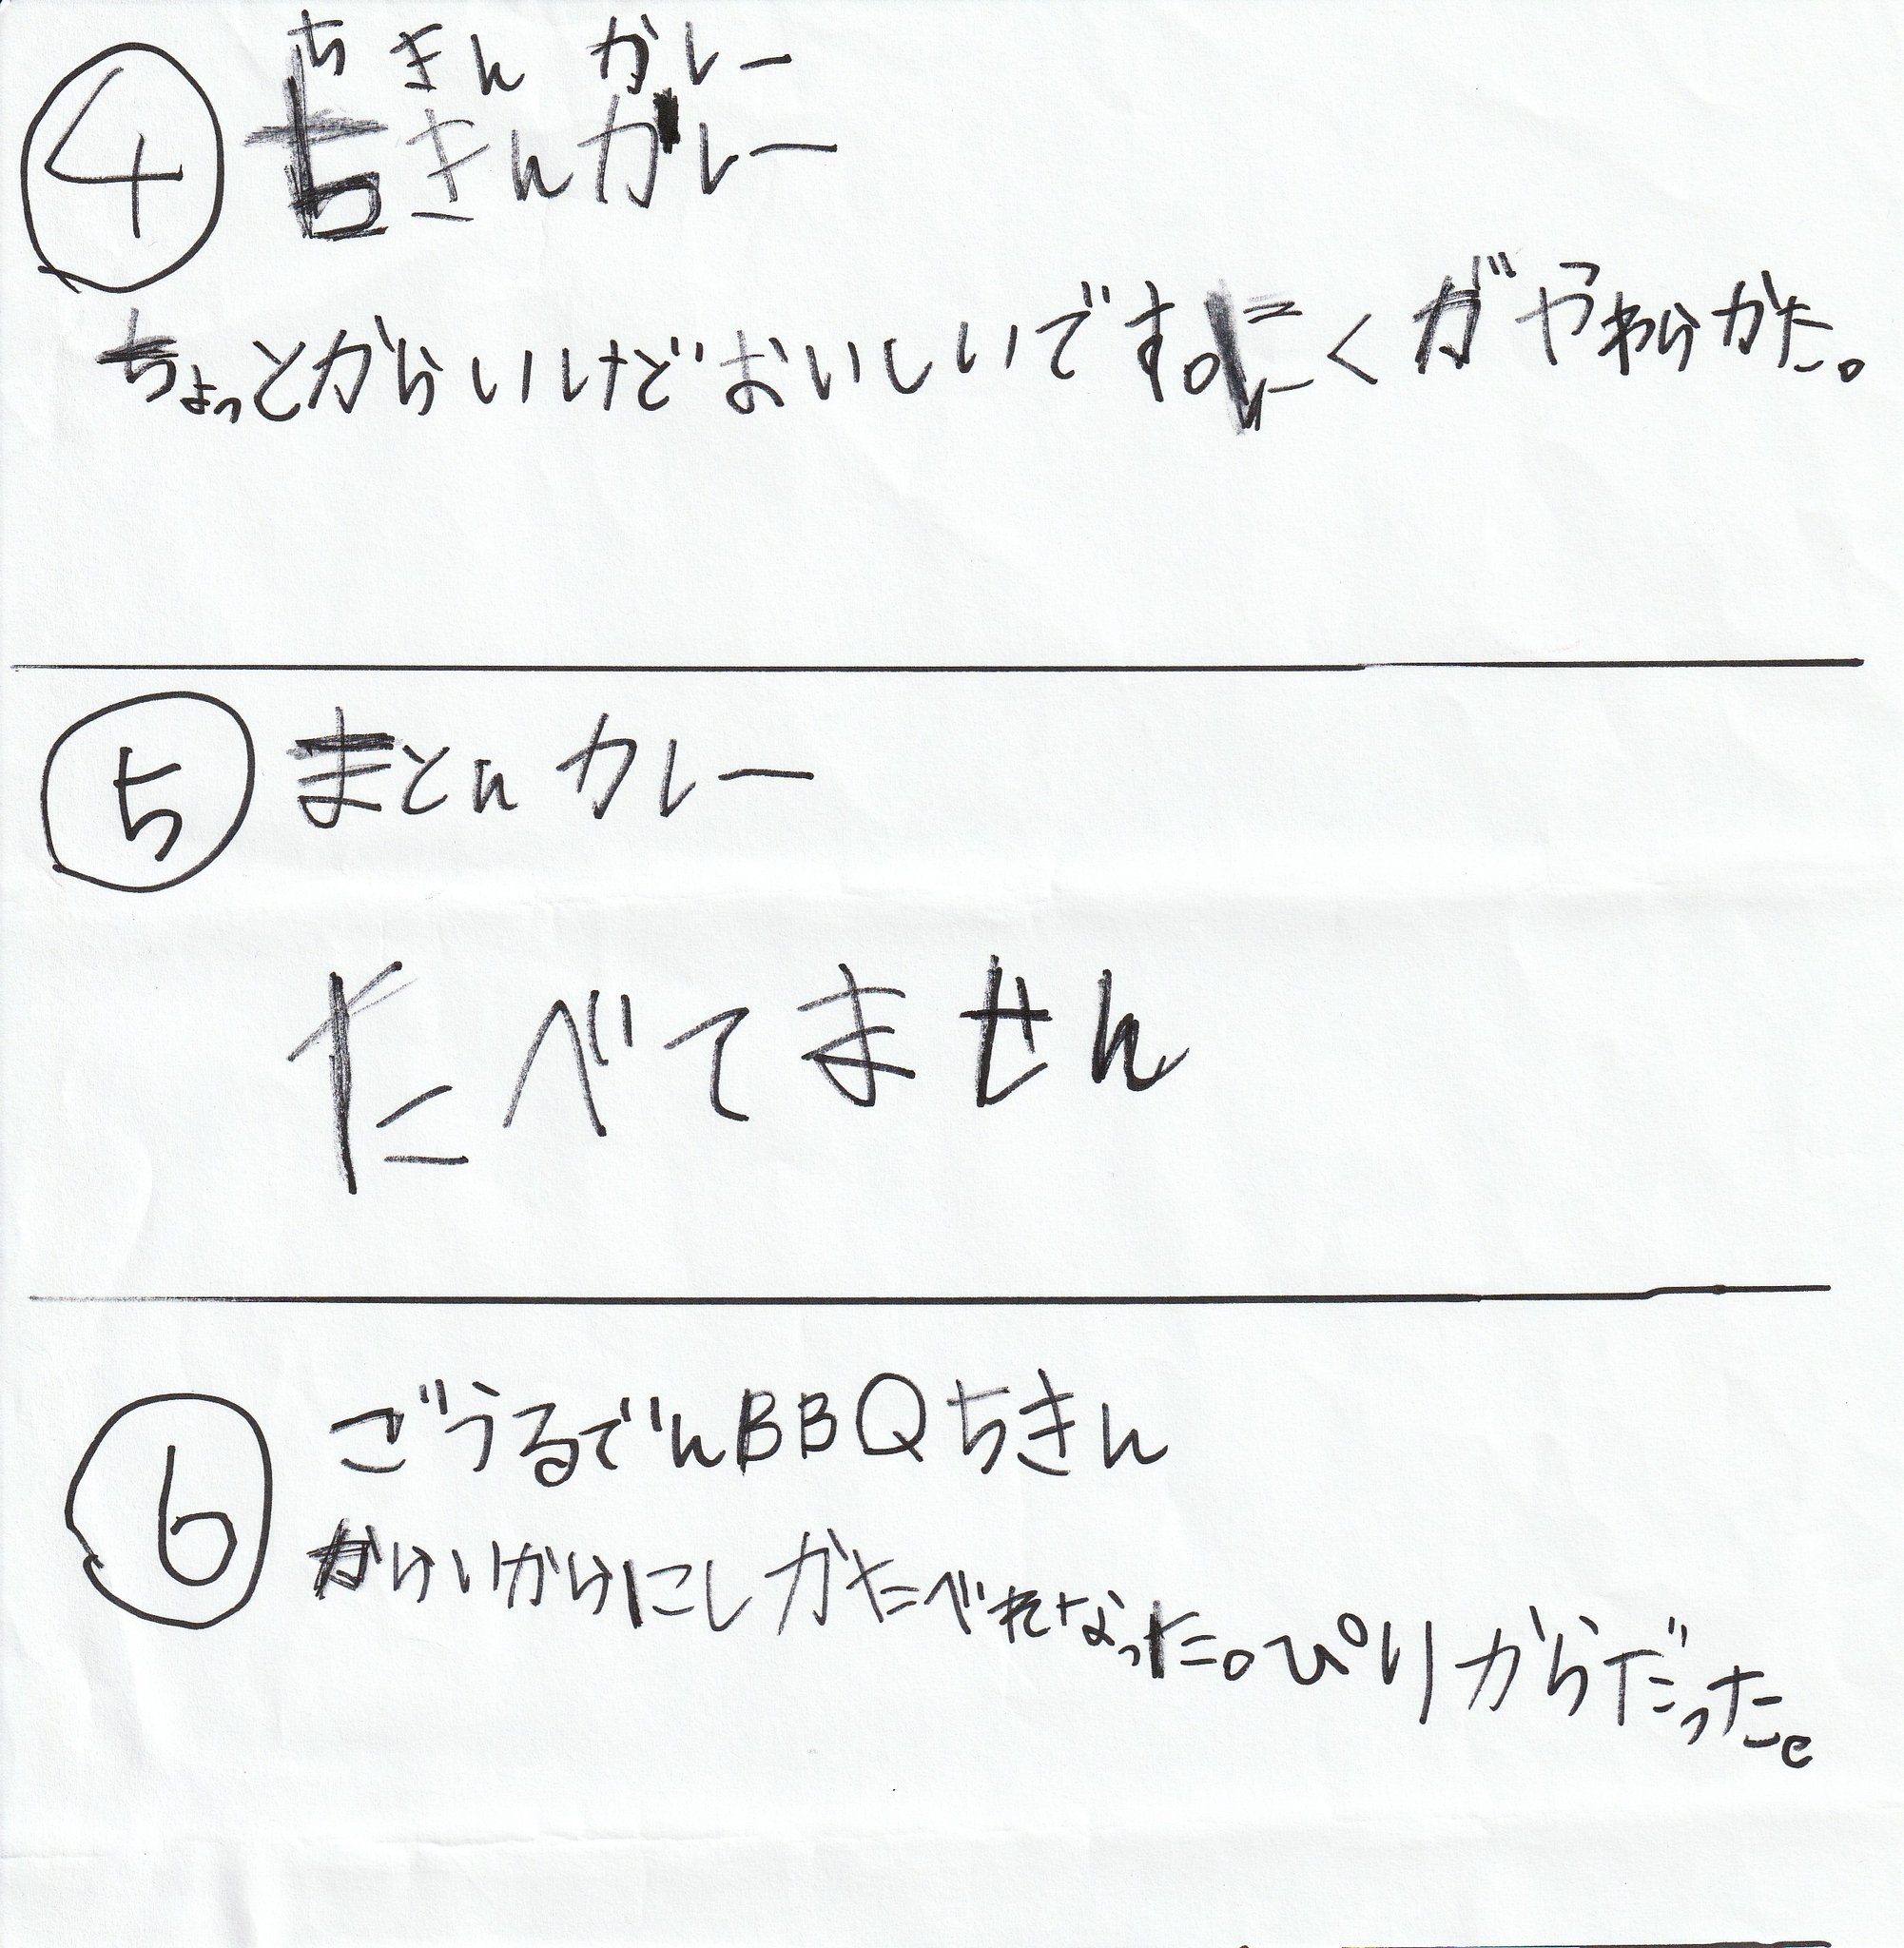 ④
ちきん カレー
ちきんカレー
ちょっとからいけどおいしいです。にくがやわらかた。
⑤ まとん カレー
たべてません
⑥ ごうるでんBBQちきん
からいからにしかたべれなった。ぴりからだった。